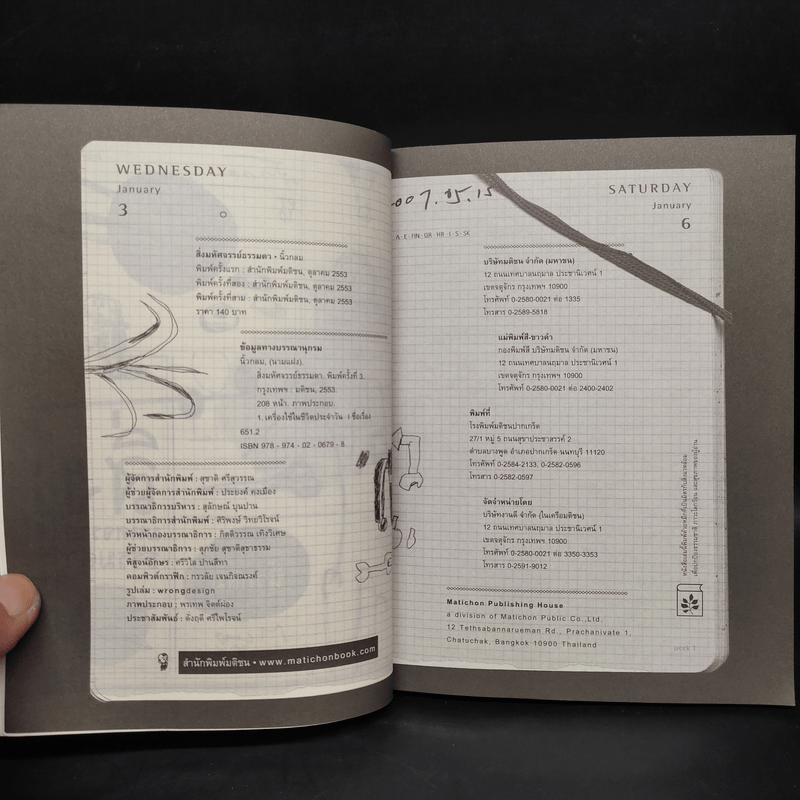 WEDNESDAY
January
3
สิ่งมหัศจรรย์ธรรมดา • นิ้วกลม
พิมพ์ครั้งแรก : สำนักพิมพ์มติชน, ตุลาคม 2553
พิมพ์ครั้งที่สอง : สำนักพิมพ์มติชน, ตุลาคม 2553
พิมพ์ครั้งที่สาม : สำนักพิมพ์มติชน, ตุลาคม 2553
ราคา 140 บาท
ข้อมูลทางบรรณานุกรม
นิ้วกลม, (นามแฝง).
สิ่งมหัศจรรย์ธรรมดา. พิมพ์ครั้งที่ 3.
กรุงเทพฯ : มติชน, 2553.
208 หน้า. ภาพประกอบ.
1. เครื่องใช้ในชีวิตประจำวัน I ชื่อเรื่อง
651.2
ISBN 978 - 974 - 02 - 0679 - 8
ผู้จัดการสำนักพิมพ์ : สุชาติ ศรีสุวรรณ
ผู้ช่วยผู้จัดการสำนักพิมพ์ : ประยงค์ คงเมือง
บรรณาธิการบริหาร : สุลักษณ์ บุนปาน
บรรณาธิการสำนักพิมพ์ : ศิริพงษ์ วิทยวิโรจน์
หัวหน้ากองบรรณาธิการ : กิตติวรรณ เทิงวิเศษ
ผู้ช่วยบรรณาธิการ : สุภชัย สุชาติสุธาธรรม
พิสูจน์อักษร : ศรีวิไล ปานสีทา
คอมพิวต์กราฟิก : กรวลัย เจนกิจณรงค์
รูปเล่ม : wrongdesign
ภาพประกอบ : พรเทพ จิตต์ผ่อง
ประชาสัมพันธ์ : ตังฤดี ศรีไพโรจน์
สำนักพิมพ์มติชน • www.matichonbook.com
SATURDAY
January
6
บริษัทมติชน จำกัด (มหาชน)
12 ถนนเทศบาลนฤมาล ประชานิเวศน์ 1
เขตจตุจักร กรุงเทพฯ 10900
โทรศัพท์ 0-2580-0021 ต่อ 1335
โทรสาร 0-2589-5818
แม่พิมพ์สี-ขาวดำ
กองพิมพ์สี บริษัทมติชน จำกัด (มหาชน)
12 ถนนเทศบาลนฤมาล ประชานิเวศน์ 1
เขตจตุจักร กรุงเทพฯ 10900
โทรศัพท์ 0-2580-0021 ต่อ 2400-2402
พิมพ์ที่
โรงพิมพ์มติชนปากเกร็ด
27/1 หมู่ 5 ถนนสุขาประชาสรรค์ 2
ตำบลบางพูด อำเภอปากเกร็ด นนทบุรี 11120
โทรศัพท์ 0-2584-2133, 0-2582-0596
โทรสาร 0-2582-0597
จัดจำหน่ายโดย
บริษัทงานดี จำกัด (ในเครือมติชน)
12 ถนนเทศบาลนฤมาล ประชานิเวศน์ 1
เขตจตุจักร กรุงเทพฯ 10900
โทรศัพท์ 0-2580-0021 ต่อ 3350-3353
โทรสาร 0-2591-9012
Matichon Publishing House
a division of Matichon Public Co.,Ltd.
12 Tethsabannarueman Rd., Prachanivate 1,
Chatuchak, Bangkok 10900 Thailand
week 1